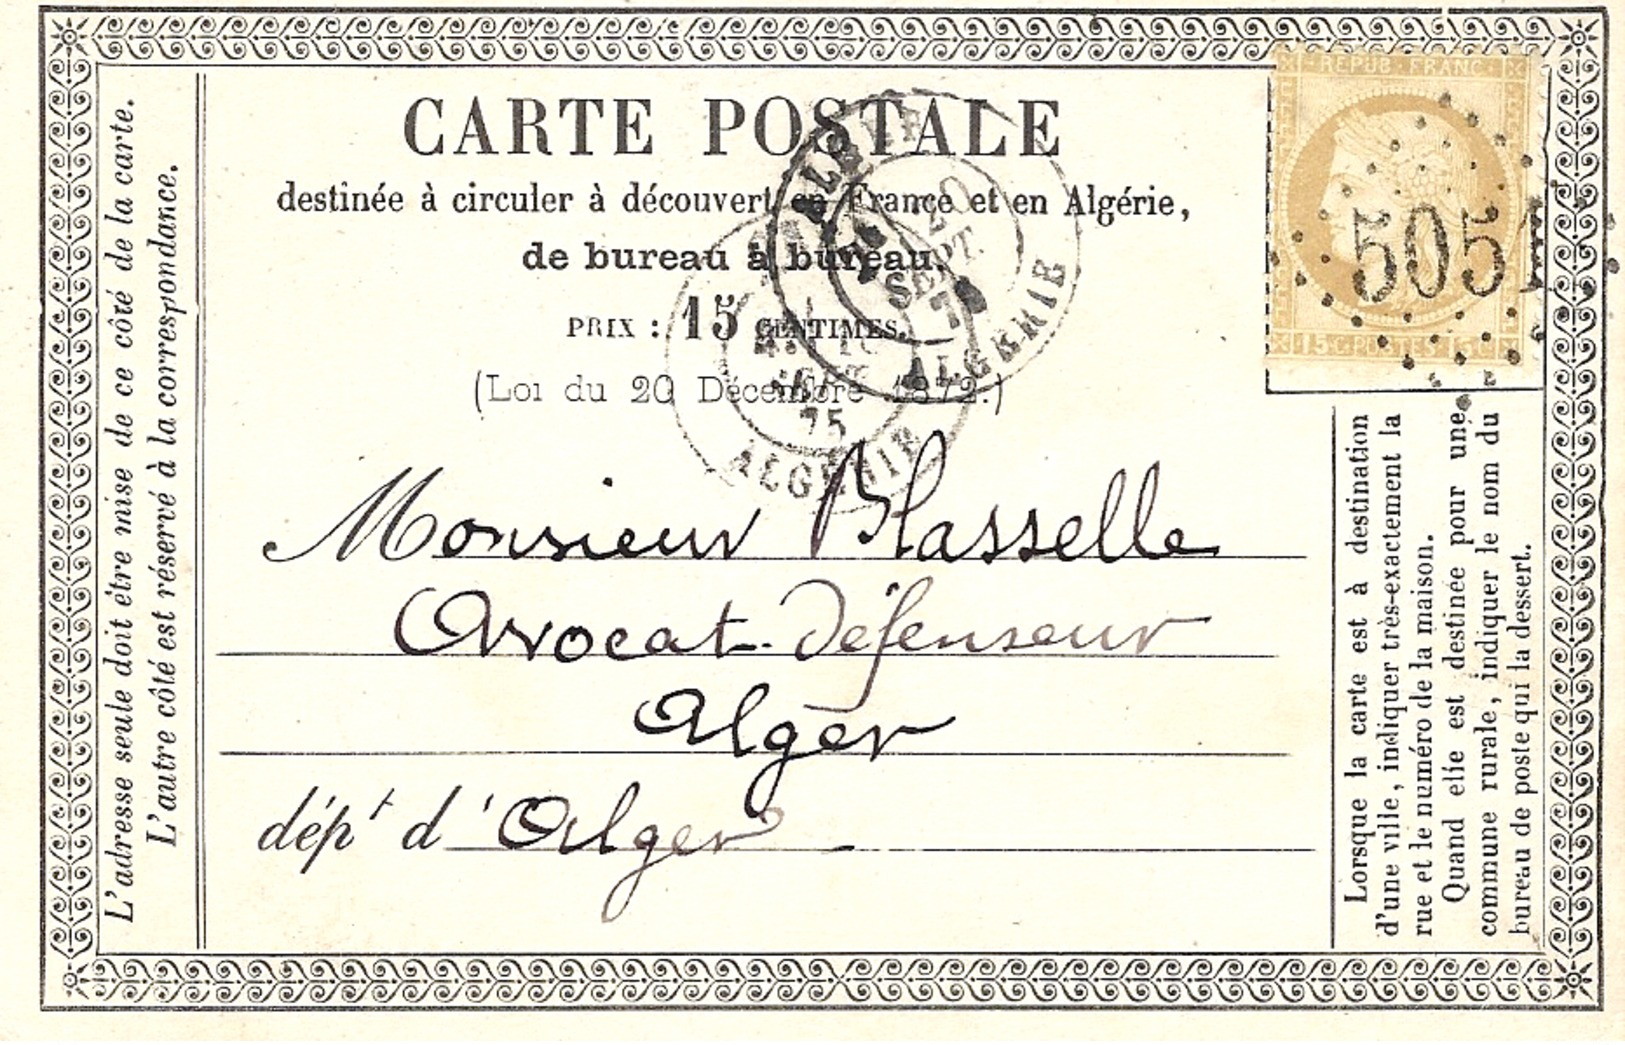 CARTE POSTALE
destinée à circuler à découvert en France et en Algérie,
de bureau à bureau.
PRIX : 15 CENTIMES.
(Loi du 20 Décembre 1872.)
Monsieur Blasselle
Avocat-Défenseur
Alger
dépt d'Alger
L'adresse seule doit être mise de ce côté de la carte.
L'autre côté est réservé à la correspondance.
Lorsque la carte est à destination
d'une ville, indiquer très-exactement la
rue et le numéro de la maison.
Quand elle est destinée pour une
commune rurale, indiquer le nom du
bureau de poste qui la dessert.
REPUB·FRANC·
15 C·POSTES·15 C
5051
20
SEPT.
ALGERIE
75
ALGERIE